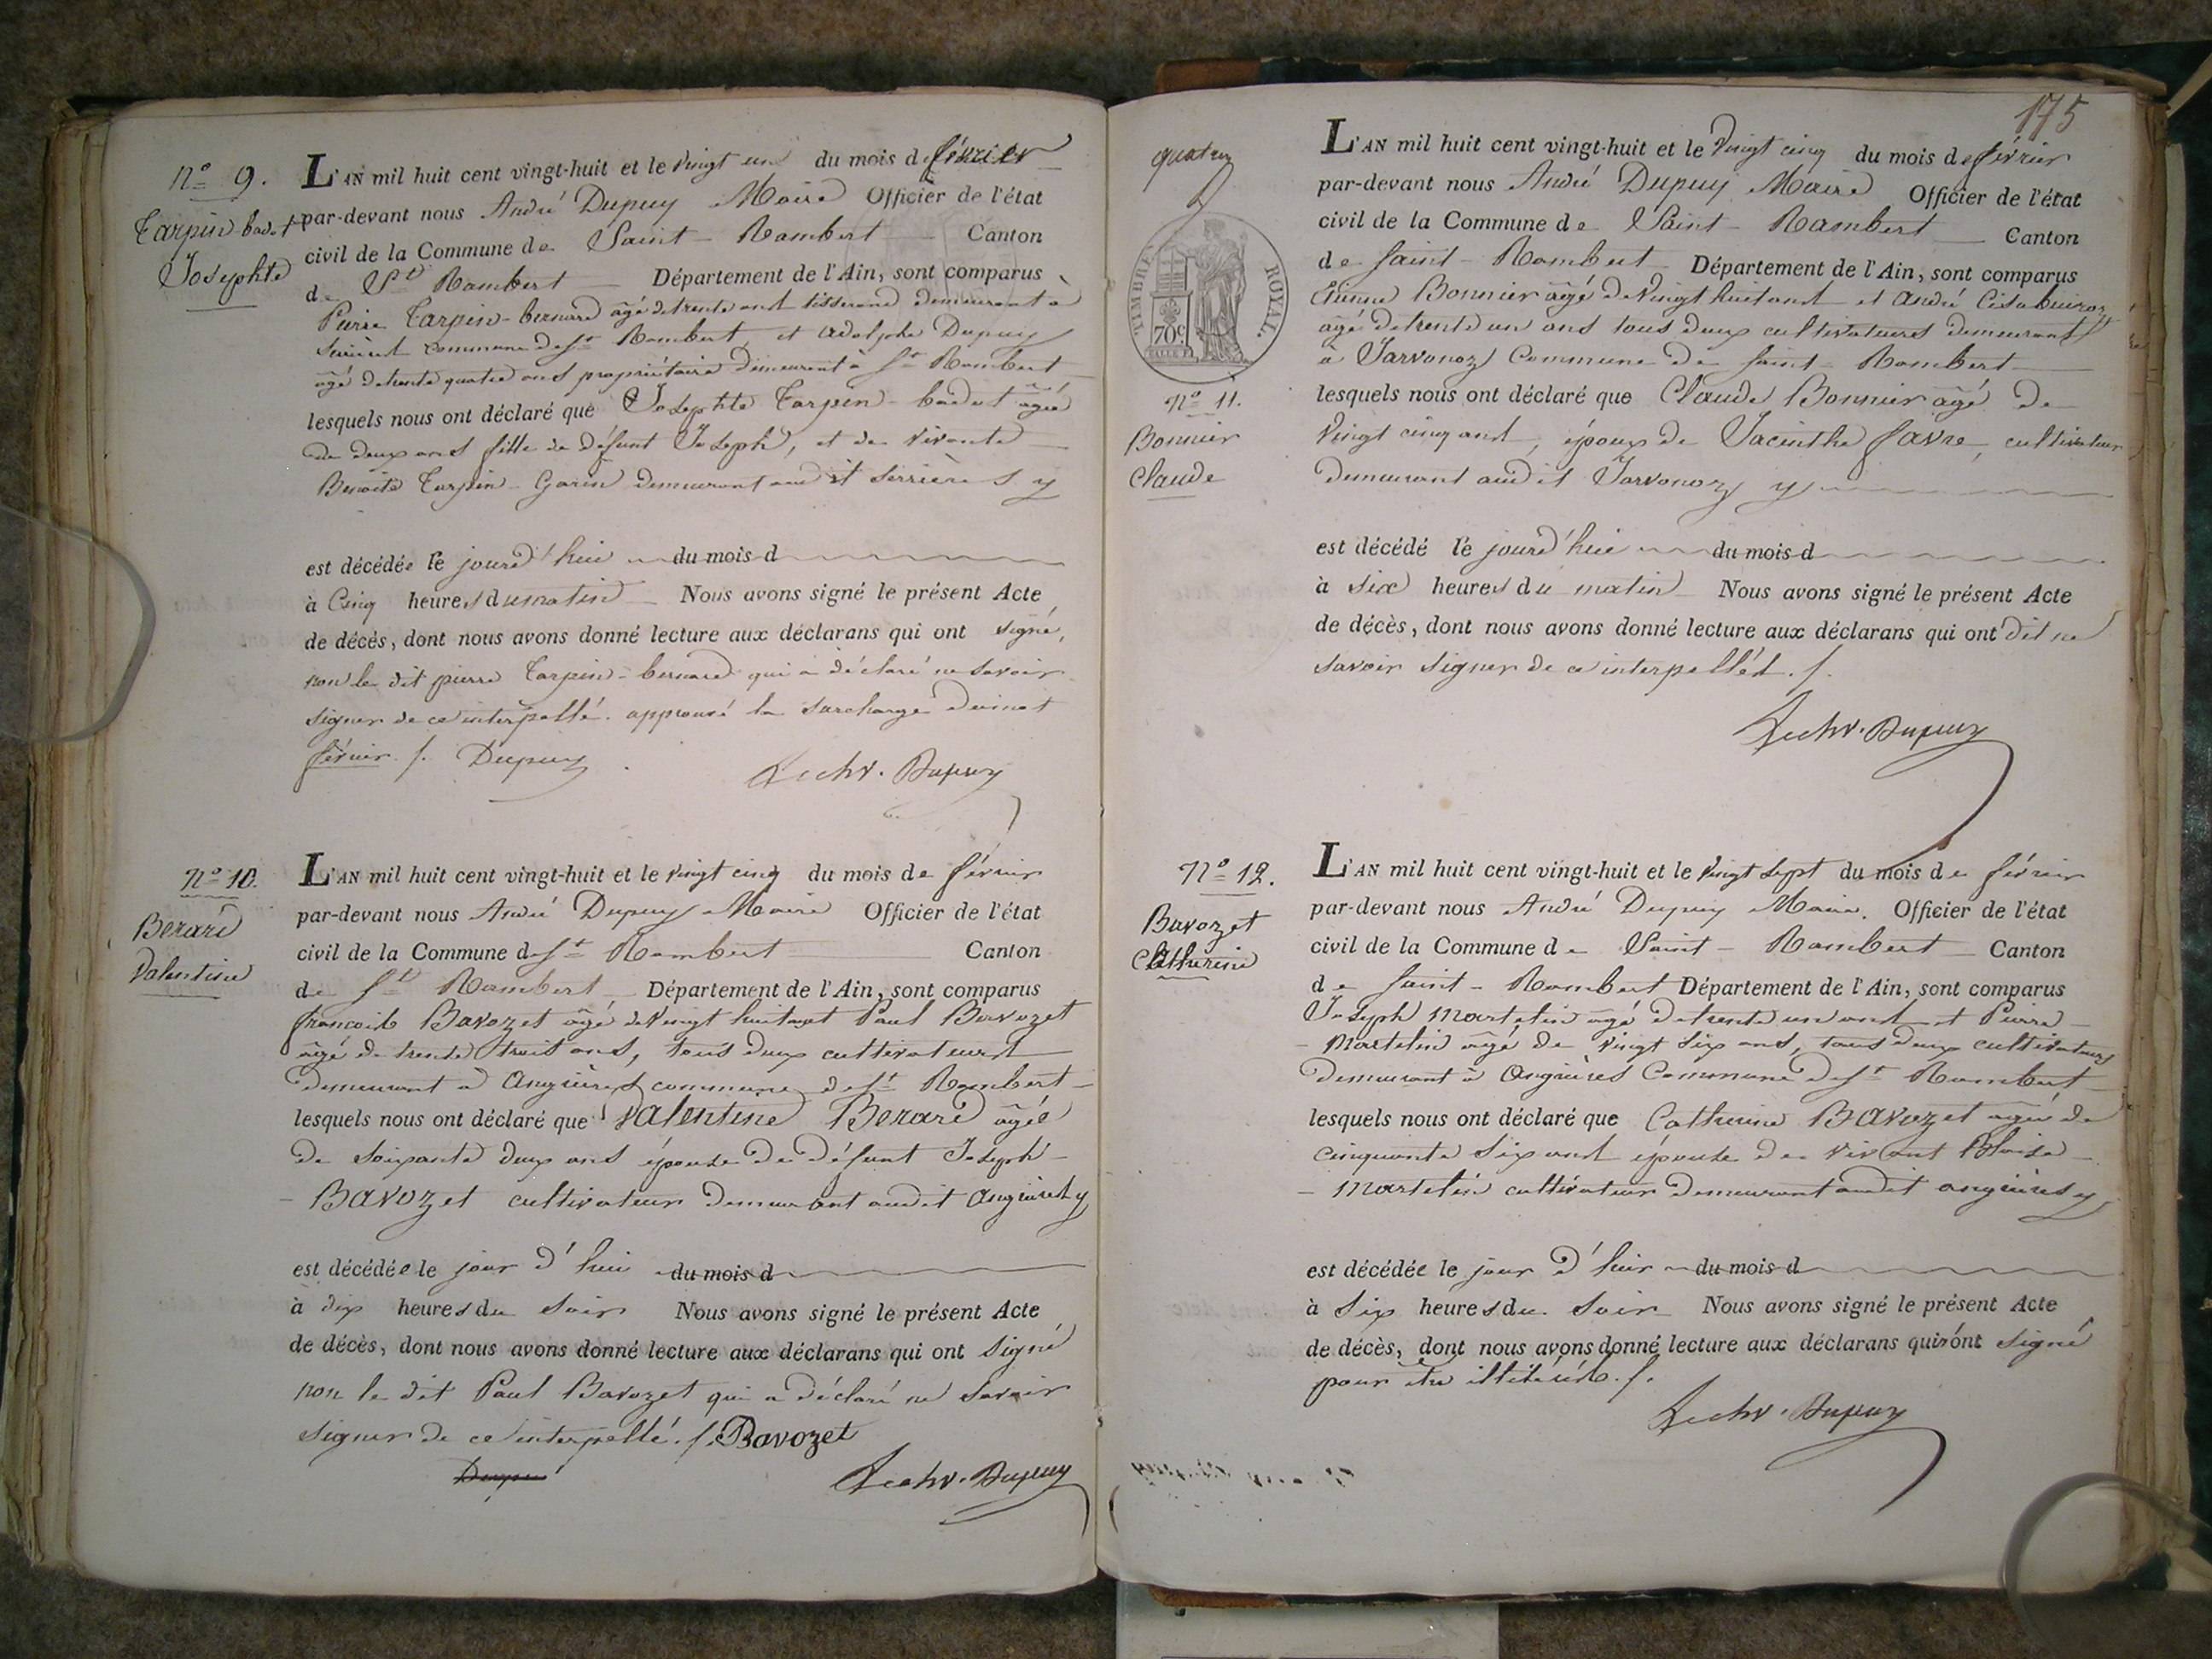 N.o 9.
Tarpin-badot
Josephte
L'AN mil huit cent vingt-huit et le vingt un du mois de février
par-devant nous André Dupuy Maire Officier de l'état
civil de la Commune de Saint-Rambert Canton
de St Rambert Département de l'Ain, sont comparus
Pierre Tarpin-bernard âgé de trente ans tisserand demeurant à
commune de St Rambert, et Adolphe Dupuy
âgé de trente quatre ans propriétaire demeurant à St Rambert
lesquels nous ont déclaré que Josephte Tarpin-badot âgée
de deux ans fille de défunt Joseph, et de vivante
Benoite Tarpin-Garin demeurant audit Serrières y
est décédée le jourd'hui du mois d
à Cinq heures du matin Nous avons signé le présent Acte
de décès, dont nous avons donné lecture aux déclarans qui ont signé,
non le dit pierre Tarpin-bernard qui a déclaré ne savoir
signer de ce interpellé. approuvé la surcharge du mot
février. /. Dupuy Dupuy
N.o 10.
Berard
Valentine
L'AN mil huit cent vingt-huit et le vingt cinq du mois de février
par-devant nous André Dupuy Maire Officier de l'état
civil de la Commune de St Rambert Canton
de St Rambert Département de l'Ain, sont comparus
françois Bavozet âgé de vingt huit ans et Paul Bavozet
âgé de trente trois ans, tous deux cultivateurs
demeurant à Angrières commune de St Rambert
lesquels nous ont déclaré que Valentine Berard âgée
de soixante deux ans épouse de défunt Joseph
Bavozet cultivateur demeurant audit Angrières y
est décédée le jour d'hui du mois d
à dix heures du soir Nous avons signé le présent Acte
de décès, dont nous avons donné lecture aux déclarans qui ont signé
non le dit Paul Bavozet qui a déclaré ne savoir
signer de ce interpellé. /. Bavozet
Dupuy
175
quatre
TIMBRE ROYAL.
70c
N.o 11.
Bonnier
Claude
L'AN mil huit cent vingt-huit et le vingt cinq du mois de février
par-devant nous André Dupuy Maire Officier de l'état
civil de la Commune de Saint-Rambert Canton
de Saint-Rambert Département de l'Ain, sont comparus
Etienne Bonnier âgé de vingt huit ans et André
âgé de trente un ans tous deux cultivateurs demeurant
à Javornoz Commune de Saint-Rambert
lesquels nous ont déclaré que Claude Bonnier âgé de
vingt cinq ans, époux de Jacinthe favre, cultivateur
demeurant audit Javornoz y
est décédé le jourd'hui du mois d
à six heures du matin Nous avons signé le présent Acte
de décès, dont nous avons donné lecture aux déclarans qui ont dit ne
savoir signer de ce interpellés. /.
Dupuy
N.o 12.
Bavozet
Catherine
L'AN mil huit cent vingt-huit et le vingt sept du mois de février
par-devant nous André Dupuy Maire. Officier de l'état
civil de la Commune de Saint-Rambert Canton
de Saint-Rambert Département de l'Ain, sont comparus
Joseph Martelin âgé de trente un ans et Pierre
Martelin âgé de vingt six ans, tous deux cultivateurs
demeurant à Angrières Commune de St Rambert
lesquels nous ont déclaré que Catherine Bavozet âgée de
cinquante six ans épouse de vivant Blaise
Martelin cultivateur demeurant audit angrières y
est décédée le jour d'hui du mois d
à Six heures du Soir Nous avons signé le présent Acte
de décès, dont nous avons donné lecture aux déclarans qui ont signé
pour être illitérés. /.
Dupuy